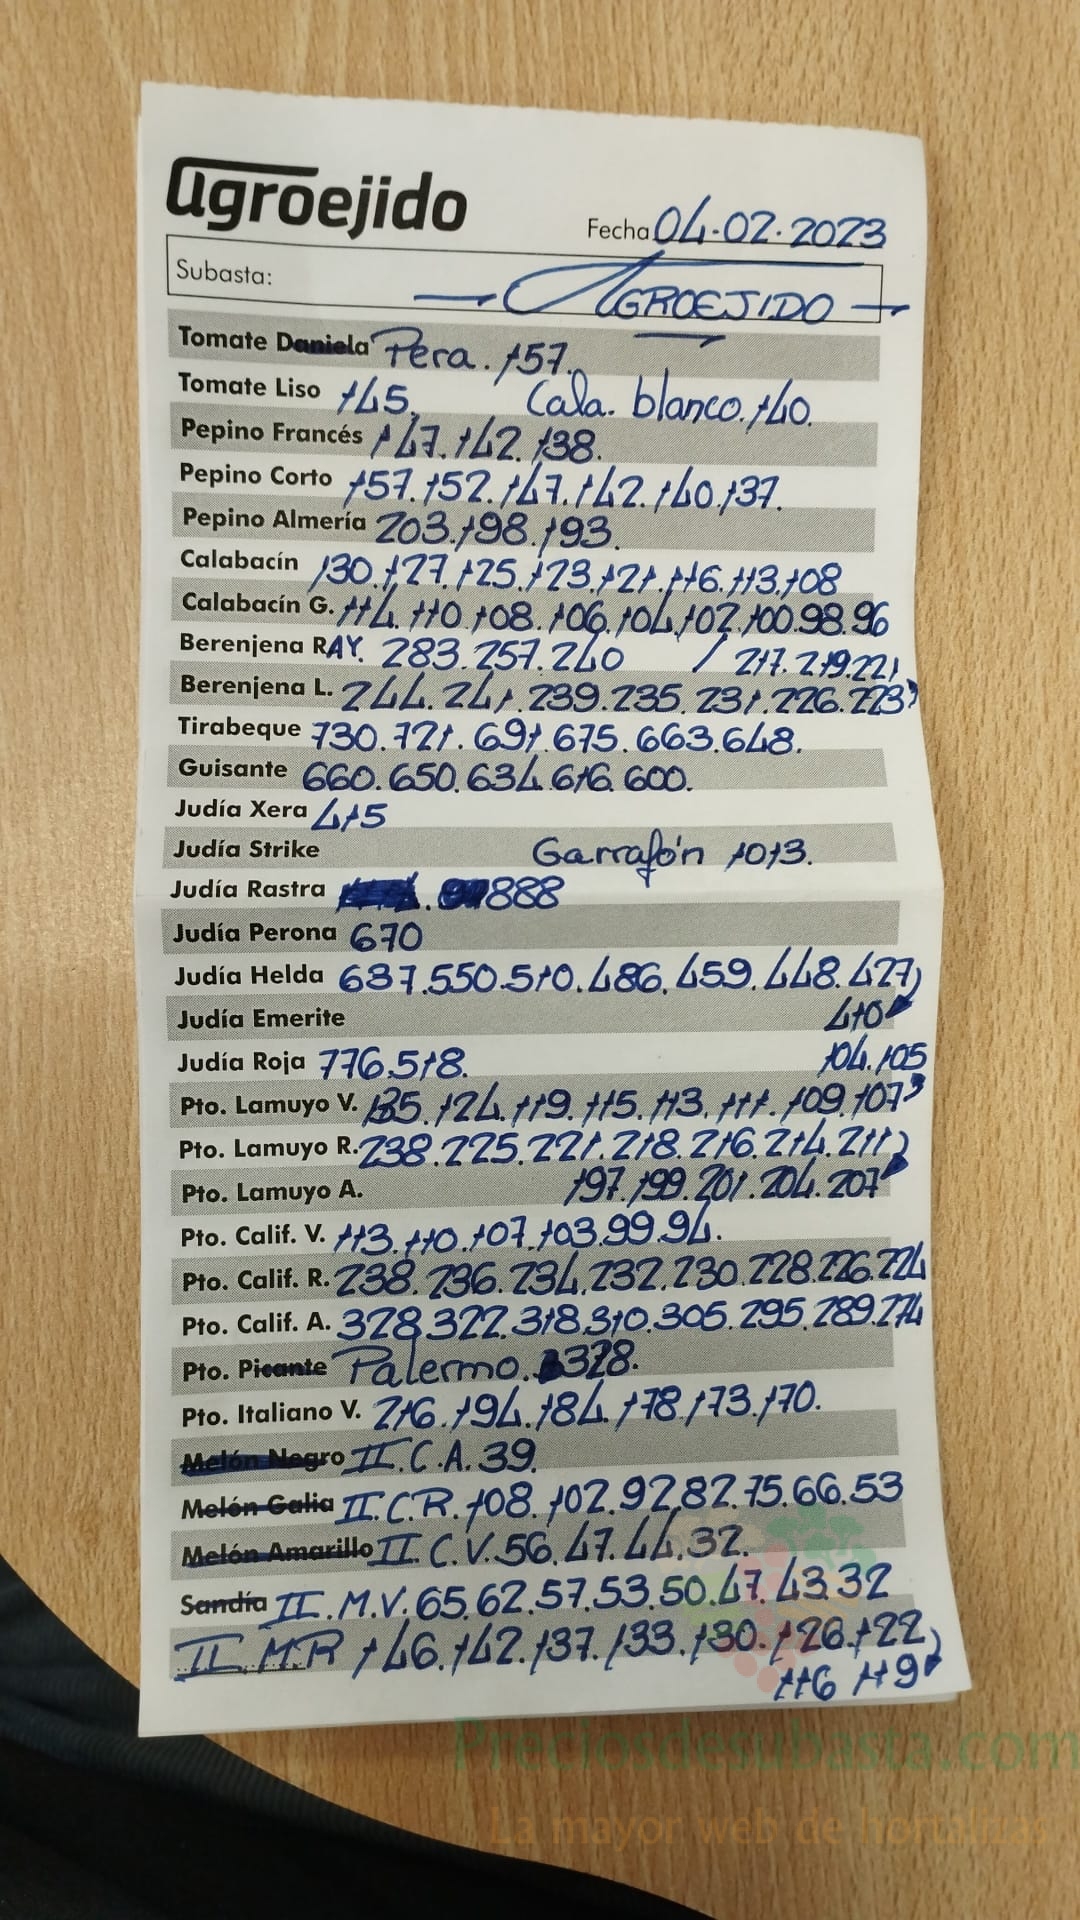 agroejido
Fecha 04-02-2023
Subasta: AGROEJIDO
Tomate Daniela Pera. 157.
Tomate Liso 145. Cala. blanco. 140.
Pepino Francés 147. 142. 138.
Pepino Corto 157. 152. 147. 142. 140. 137.
Pepino Almería 203. 198. 193.
Calabacín 130. 127. 125. 123. 121. 116. 113. 108
Calabacín G. 114. 110. 108. 106. 104. 102. 100. 98. 96
Berenjena RAY. 283. 257. 240 / 217. 219. 221
Berenjena L. 244. 241. 239. 235. 231. 226. 223
Tirabeque 730. 721. 691. 675. 663. 648.
Guisante 660. 650. 634. 616. 600.
Judía Xera 415
Judía Strike Garrafón 1013.
Judía Rastra 888
Judía Perona 670
Judía Helda 637. 550. 510. 486. 459. 448. 427
Judía Emerite 410
Judía Roja 776. 518. 104. 105
Pto. Lamuyo V. 135. 124. 119. 115. 113. 111. 109. 107
Pto. Lamuyo R. 238. 225. 221. 218. 216. 214. 211
Pto. Lamuyo A. 197. 199. 201. 204. 207
Pto. Calif. V. 113. 110. 107. 103. 99. 94.
Pto. Calif. R. 238. 236. 234. 232. 230. 228. 226. 224
Pto. Calif. A. 328. 322. 318. 310. 305. 295. 289. 274
Pto. Picante Palermo. 328.
Pto. Italiano V. 216. 194. 184. 178. 173. 170.
Melón Negro II. C. A. 39.
Melón Galia II. C. R. 108. 102. 92. 82. 75. 66. 53
Melón Amarillo II. C. V. 56. 47. 44. 32.
Sandía II. M. V. 65. 62. 57. 53. 50. 47. 43. 32
II. M. R 146. 142. 137. 133. 130. 126. 122
116 119
Preciosdesubasta.com
La mayor web de hortalizas